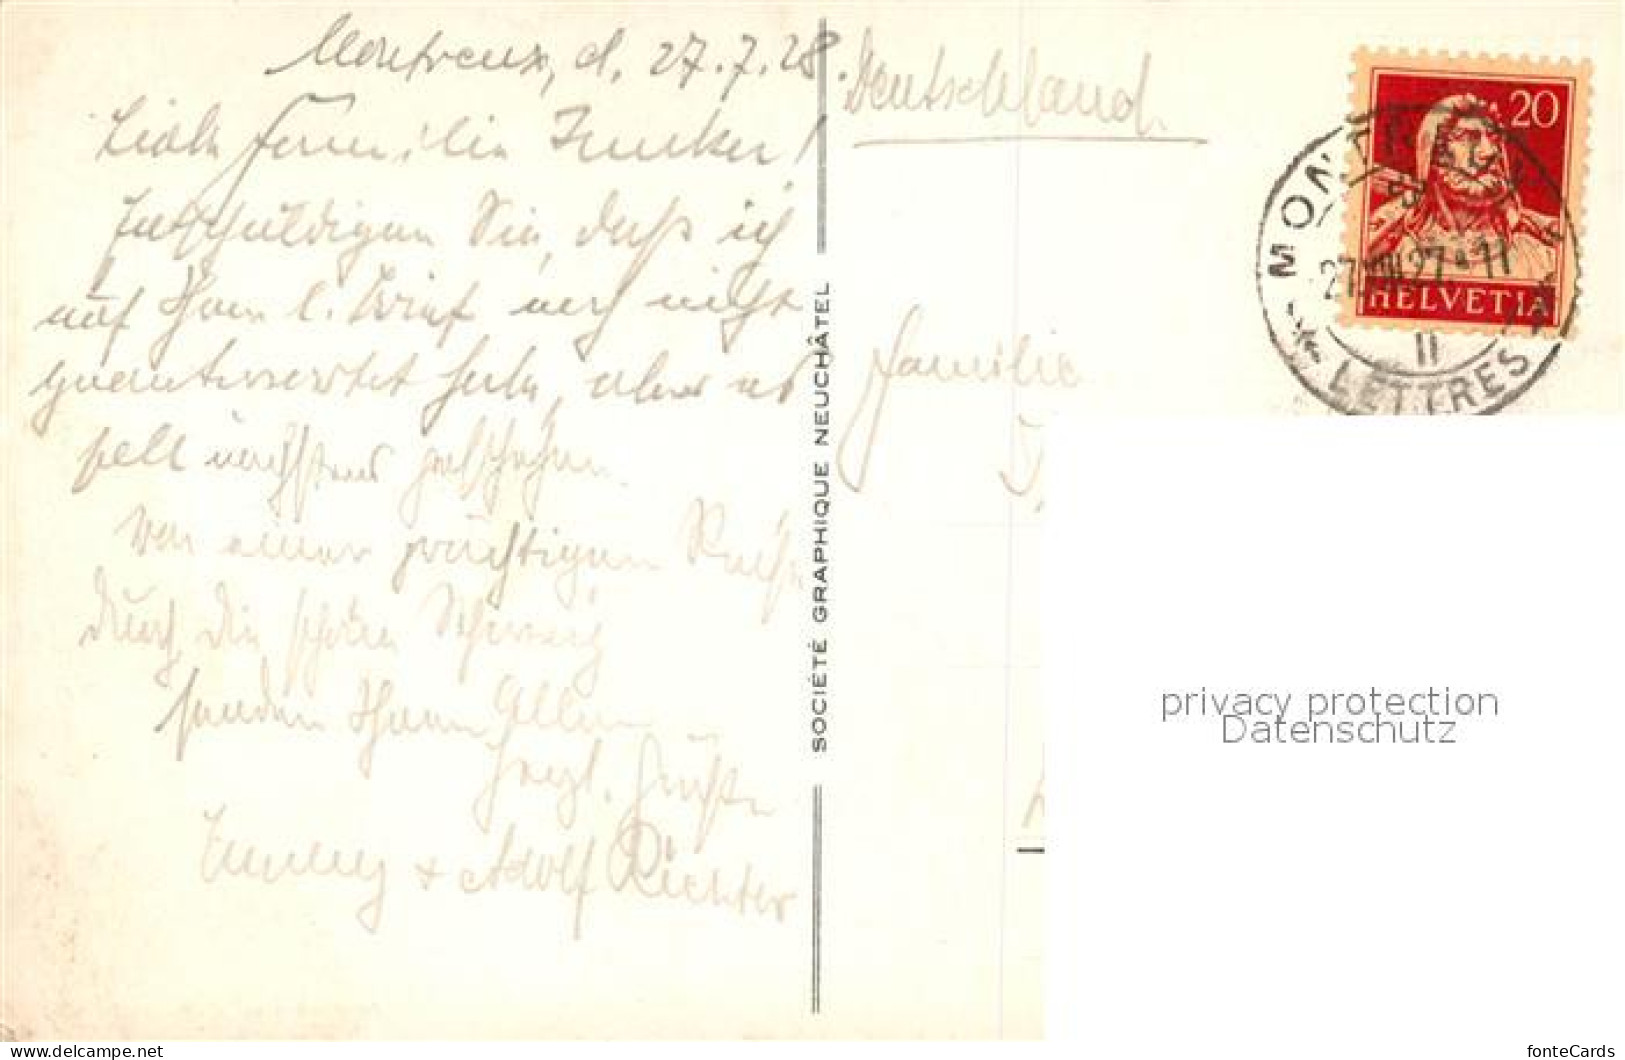 Montreux, d. 27.7.28.
Liebe Familie Junker!
Entschuldigen Sie, daß ich
auf Ihren l. Brief noch nicht
geantwortet habe, aber es
soll nächstens geschehen.
Von einer prächtigen Reise
durch die schöne Schweiz
senden Ihnen Allen
herzl. Grüße
Emmy + Adolf Richter
SOCIÉTÉ GRAPHIQUE NEUCHÂTEL
Deutschland.
Familie
20
HELVETIA
MONTREUX
27.VIII.27.11
II
LETTRES
privacy protection
Datenschutz
www.delcampe.net
fonteCards